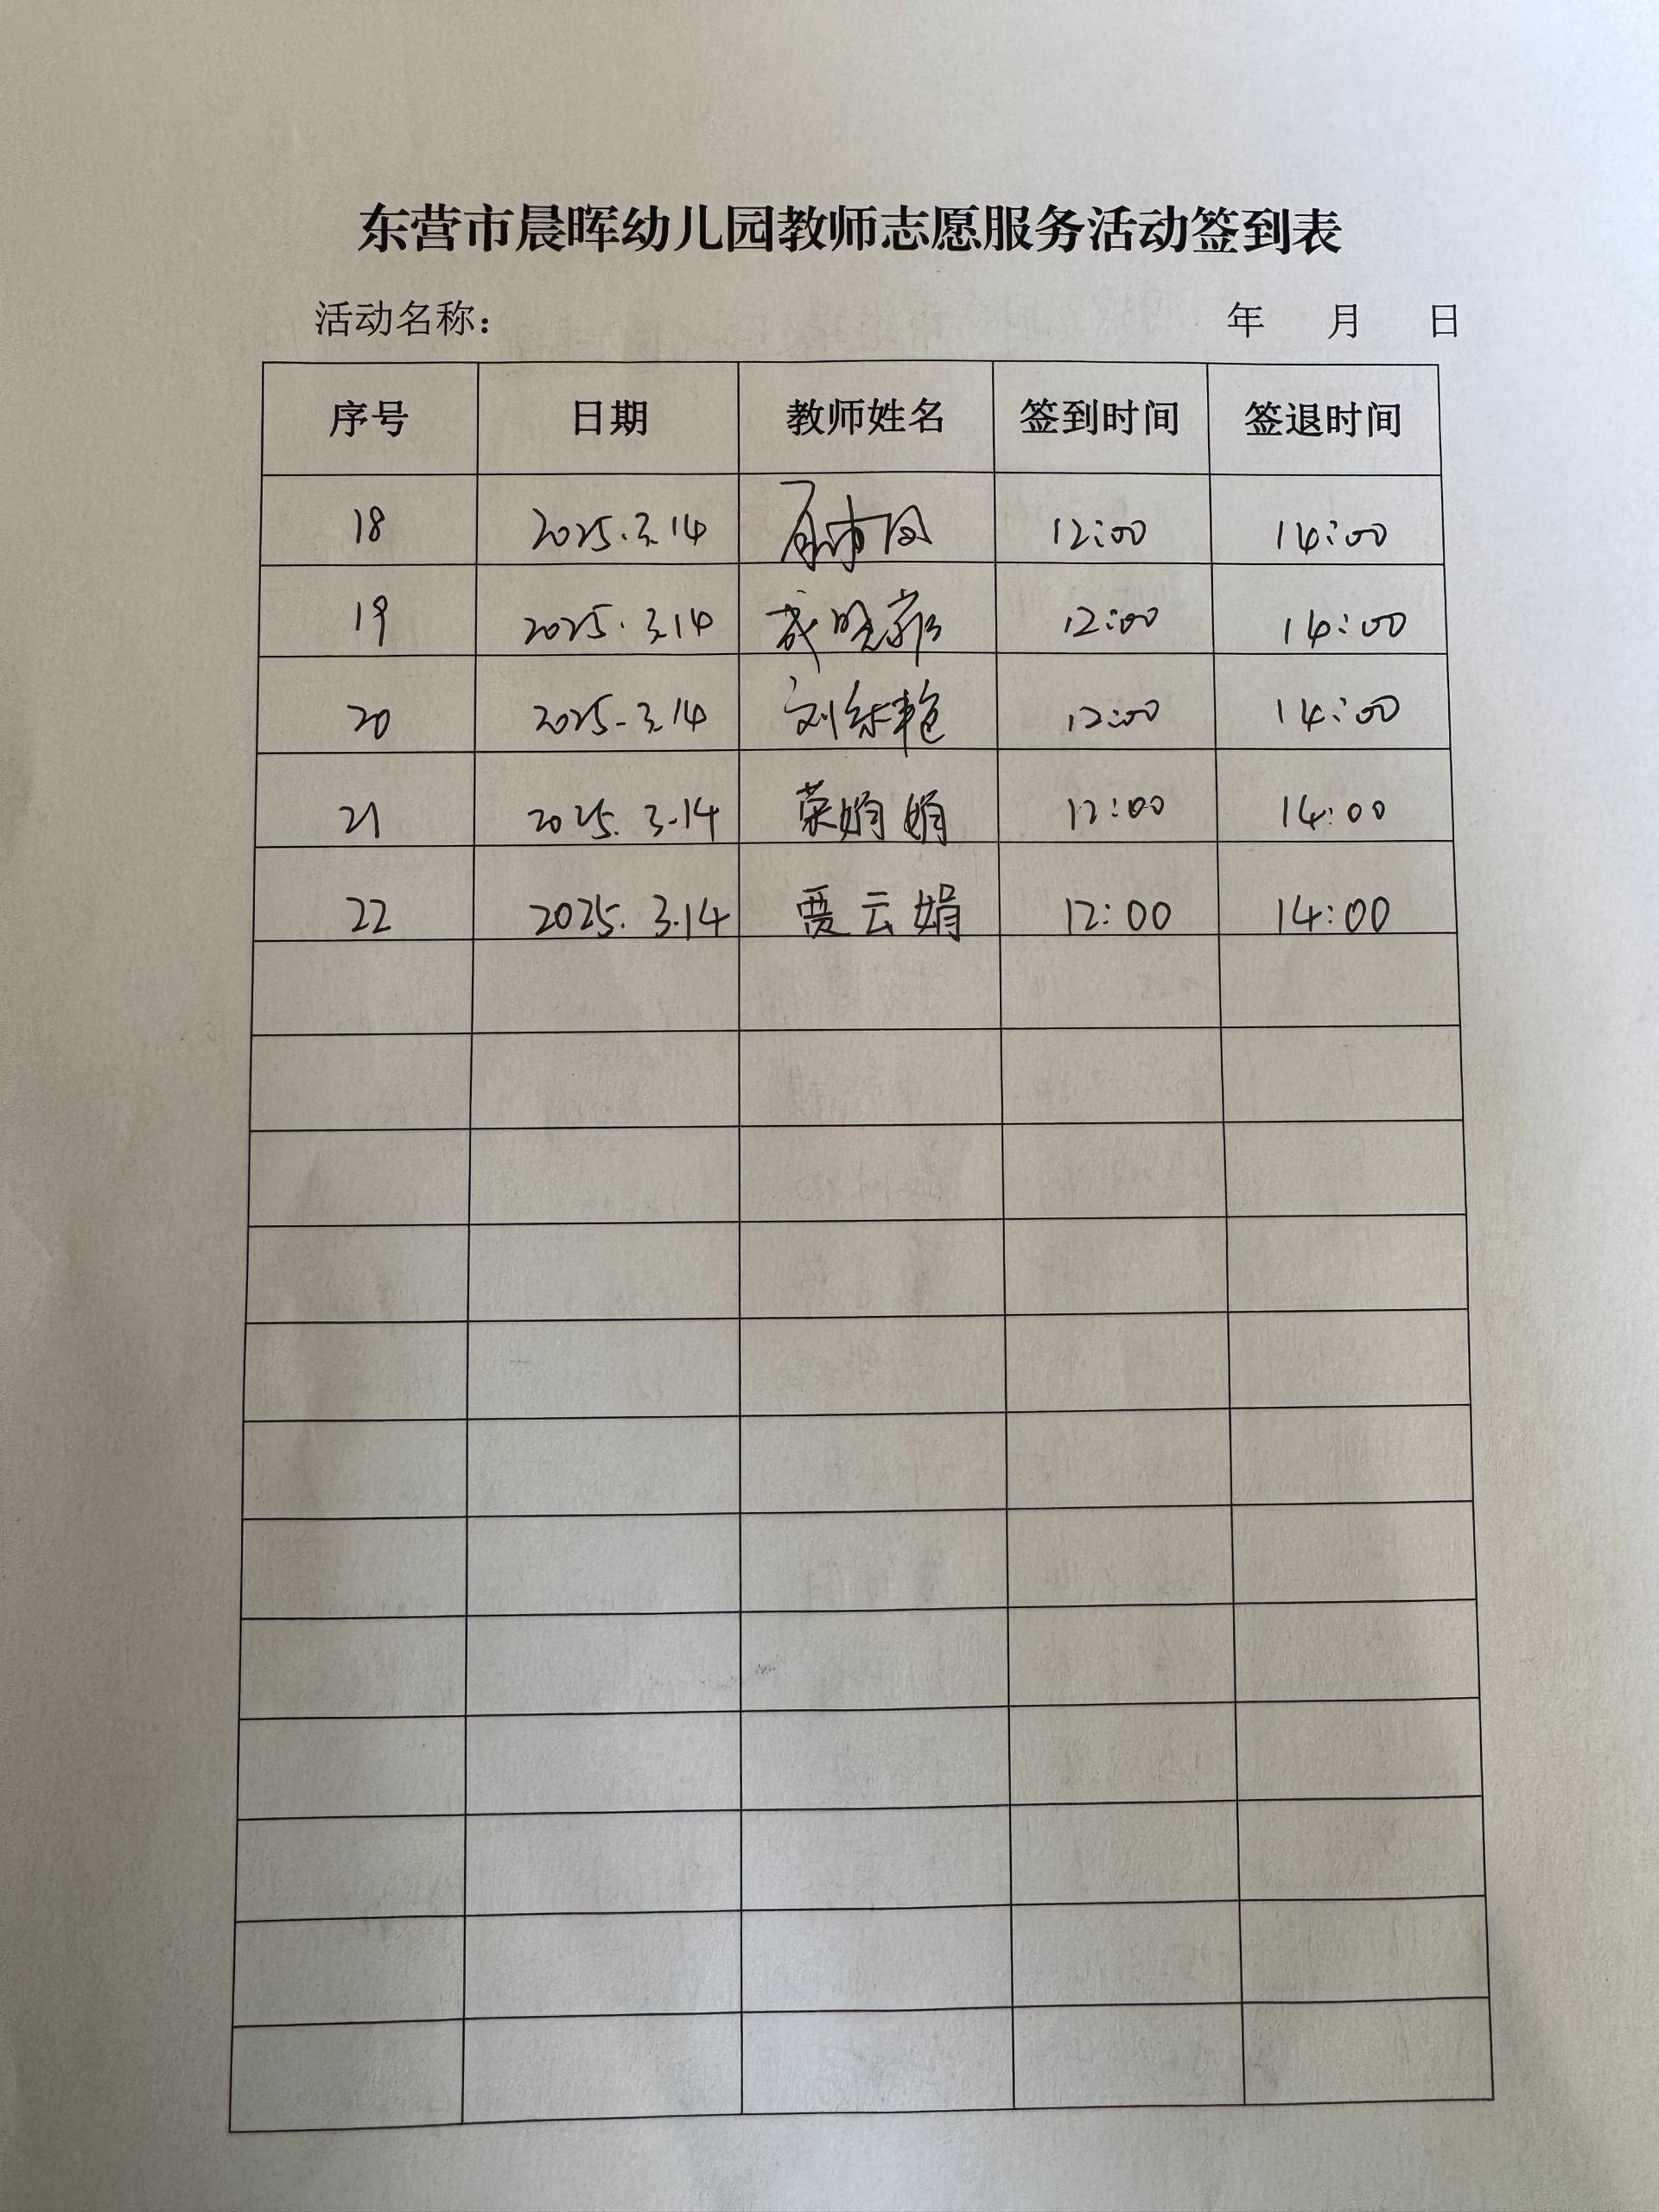 东营市晨晖幼儿园教师志愿服务活动签到表
活动名称： 年 月 日
序号 日期 教师姓名 签到时间 签退时间
18 2025.3.14 12:00 14:00
19 2025.3.14 12:00 14:00
20 2025.3.14 刘 12:00 14:00
21 2025.3.14 荣娟娟 12:00 14:00
22 2025.3.14 贾云娟 12:00 14:00